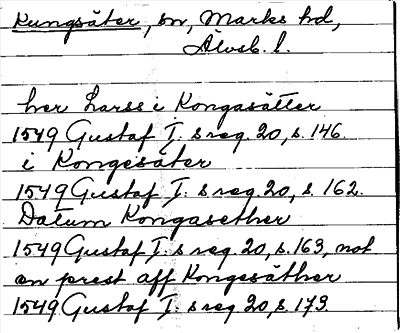 Kungsäter, sn, Marks hd,
Älvsb. l.
her Larss i Kongasätter
1549 Gustaf I: s reg. 20, s. 146.
i Kongesäter
1549 Gustaf I: s reg. 20, s. 162.
Datum Kongasether
1549 Gustaf I: s reg. 20, s. 163, not
en prest aff Kongesäther
1549 Gustaf I: s reg 20, s. 173.